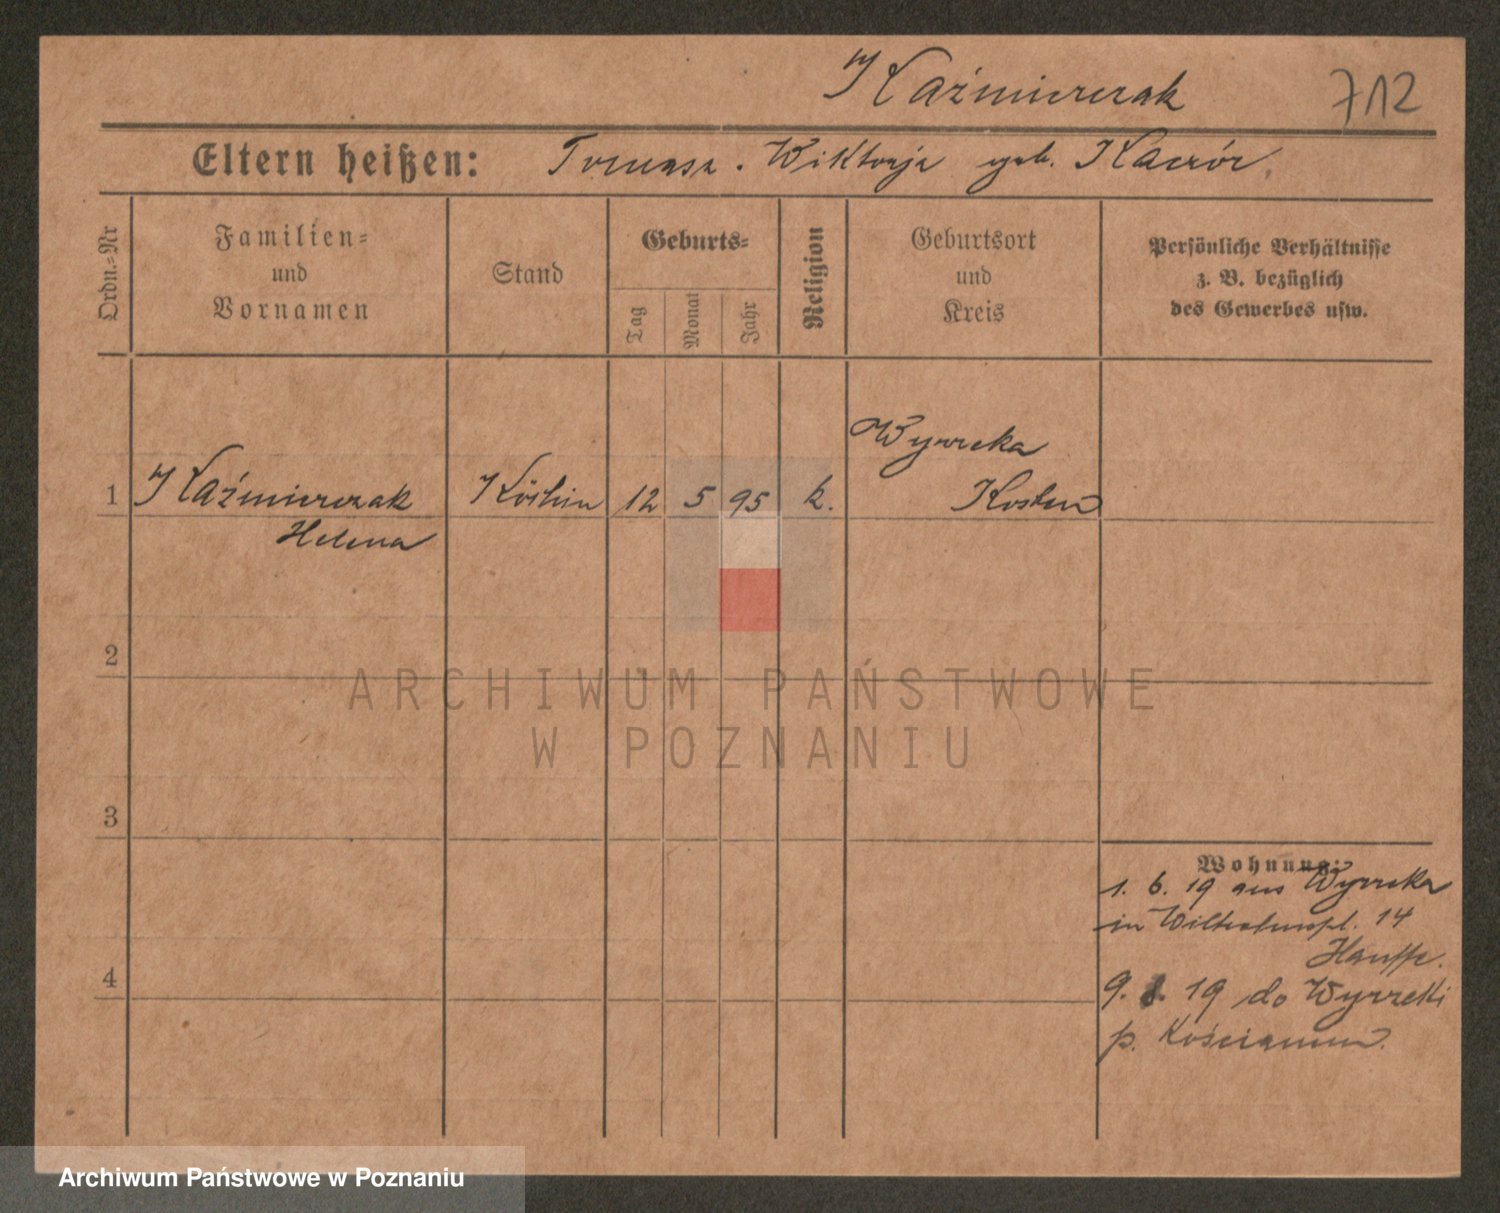 Kaźmierczak 712
Eltern heißen: Tomasz. Wiktorja geb. Kaczór.
Ordn.-Nr
Familien-
und
Vornamen
Stand
Geburts-
Tag
Monat
Jahr
Religion
Geburtsort
und
Kreis
Persönliche Verhältnisse
z. B. bezüglich
des Gewerbes usw.
Wyrzeka
1 Kaźmierczak Köchin 12 5 95 k. Kosten
Helena
2
ARCHIWUM PAŃSTWOWE
W POZNANIU
3
Wohnung:
1. 6. 19 aus Wyrzeka
in 14
9. 19 do Wyrzeki
p. Kościanem.
4
Archiwum Państwowe w Poznaniu